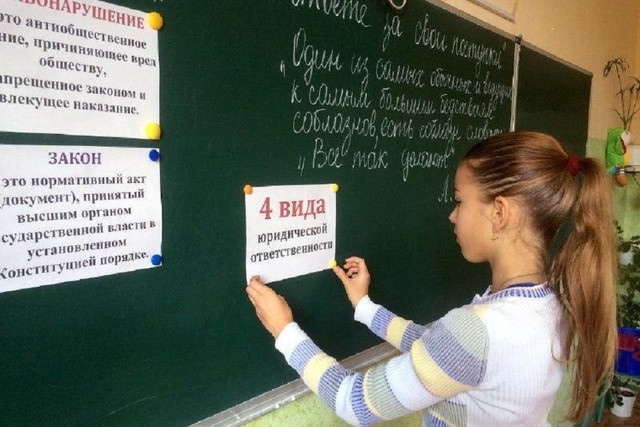 ВОНАРУШЕНИЕ
это антиобщественное
ние, причиняющее вред
обществу,
апрещенное законом и
влекущее наказание.
ЗАКОН
это нормативный акт
(документ), принятый
высшим органом
сударственной власти в
установленном
Конституцией порядке.
4 вида
юридической
ответственности
ответе за свои поступки"
"Один из самых обычных и ведущих
к самым большим бедствиям
соблазнов, есть соблазн словами:
"Все так делают"
Л.